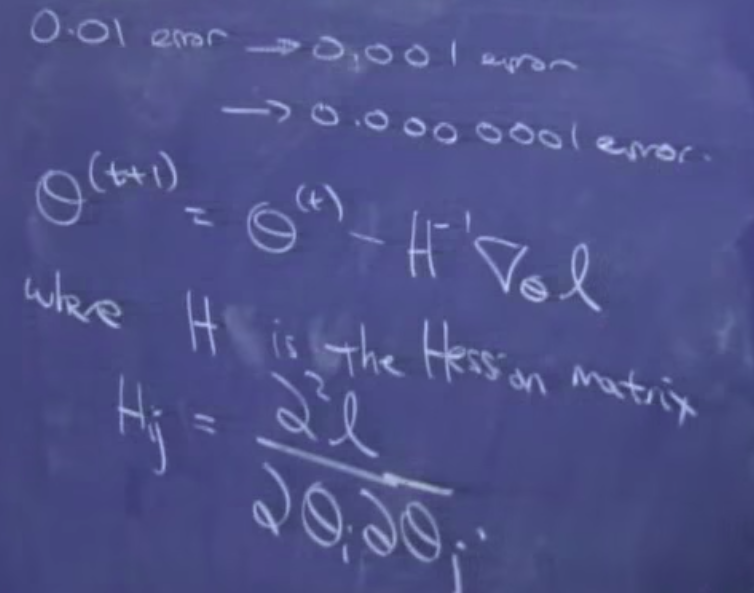 0.01 error → 0.001 error
→ 0.0000001 error.
θ^(t+1) = θ^(t) - H^-1 ∇_θ ℓ
where H is the Hessian matrix
H_ij = ∂²ℓ / ∂θ_i ∂θ_j